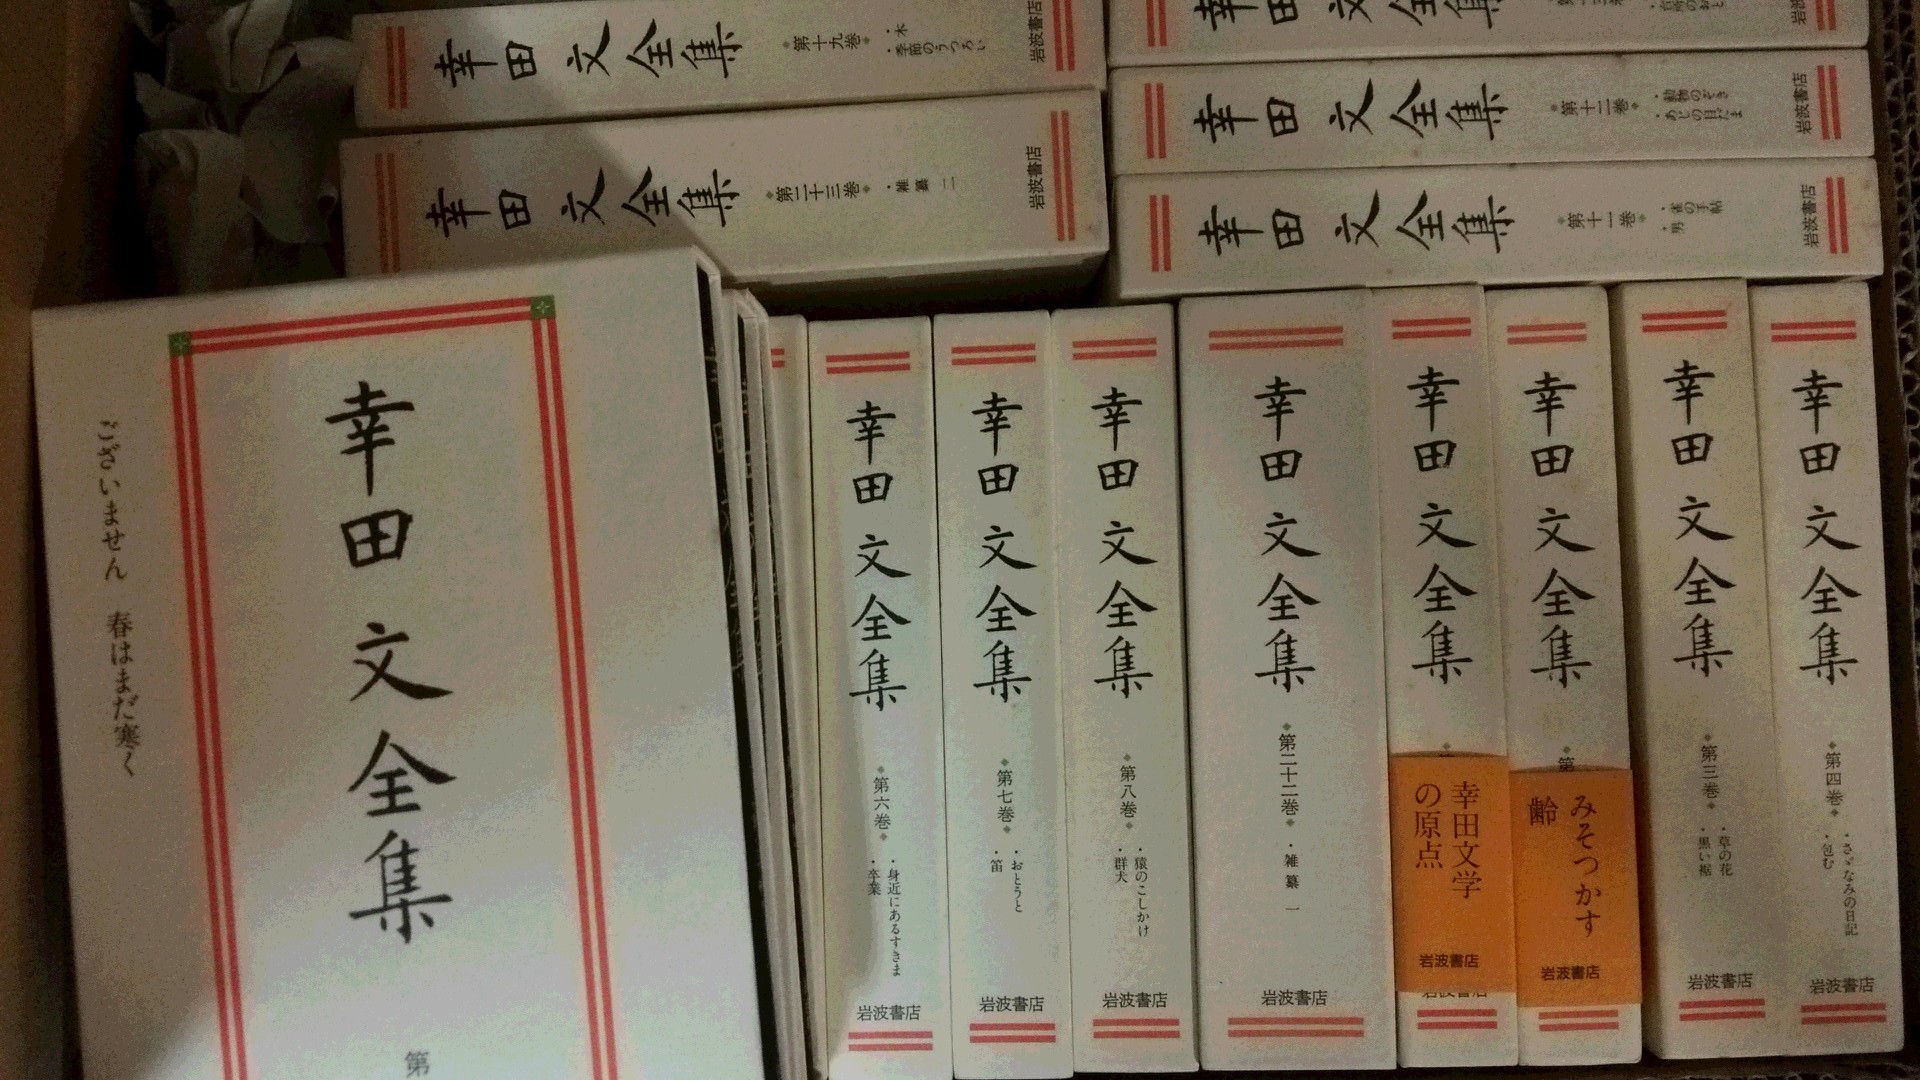 幸田文全集
第十九巻
・木
・季節のうつろい
岩波書店
幸田文全集
第二十三巻
・雑纂 二
岩波書店
幸田文全集
幸田文全集
第十二巻
・動物のぞき
・あじの目だま
岩波書店
幸田文全集
第十一巻
・雀の手帖
・男
岩波書店
幸田文全集
第
ございません 春はまだ寒く
幸田文全集
第六巻
・身近にあるすきま
・卒業
岩波書店
幸田文全集
第七巻
・おとうと
・笛
岩波書店
幸田文全集
第八巻
・猿のこしかけ
・群犬
岩波書店
幸田文全集
第二十二巻
・雑纂 一
岩波書店
幸田文全集
幸田文学
の原点
岩波書店
幸田文全集
第
みそつかす
齢
岩波書店
幸田文全集
第三巻
・草の花
・黒い裾
岩波書店
幸田文全集
第四巻
・さゞなみの日記
・包む
岩波書店